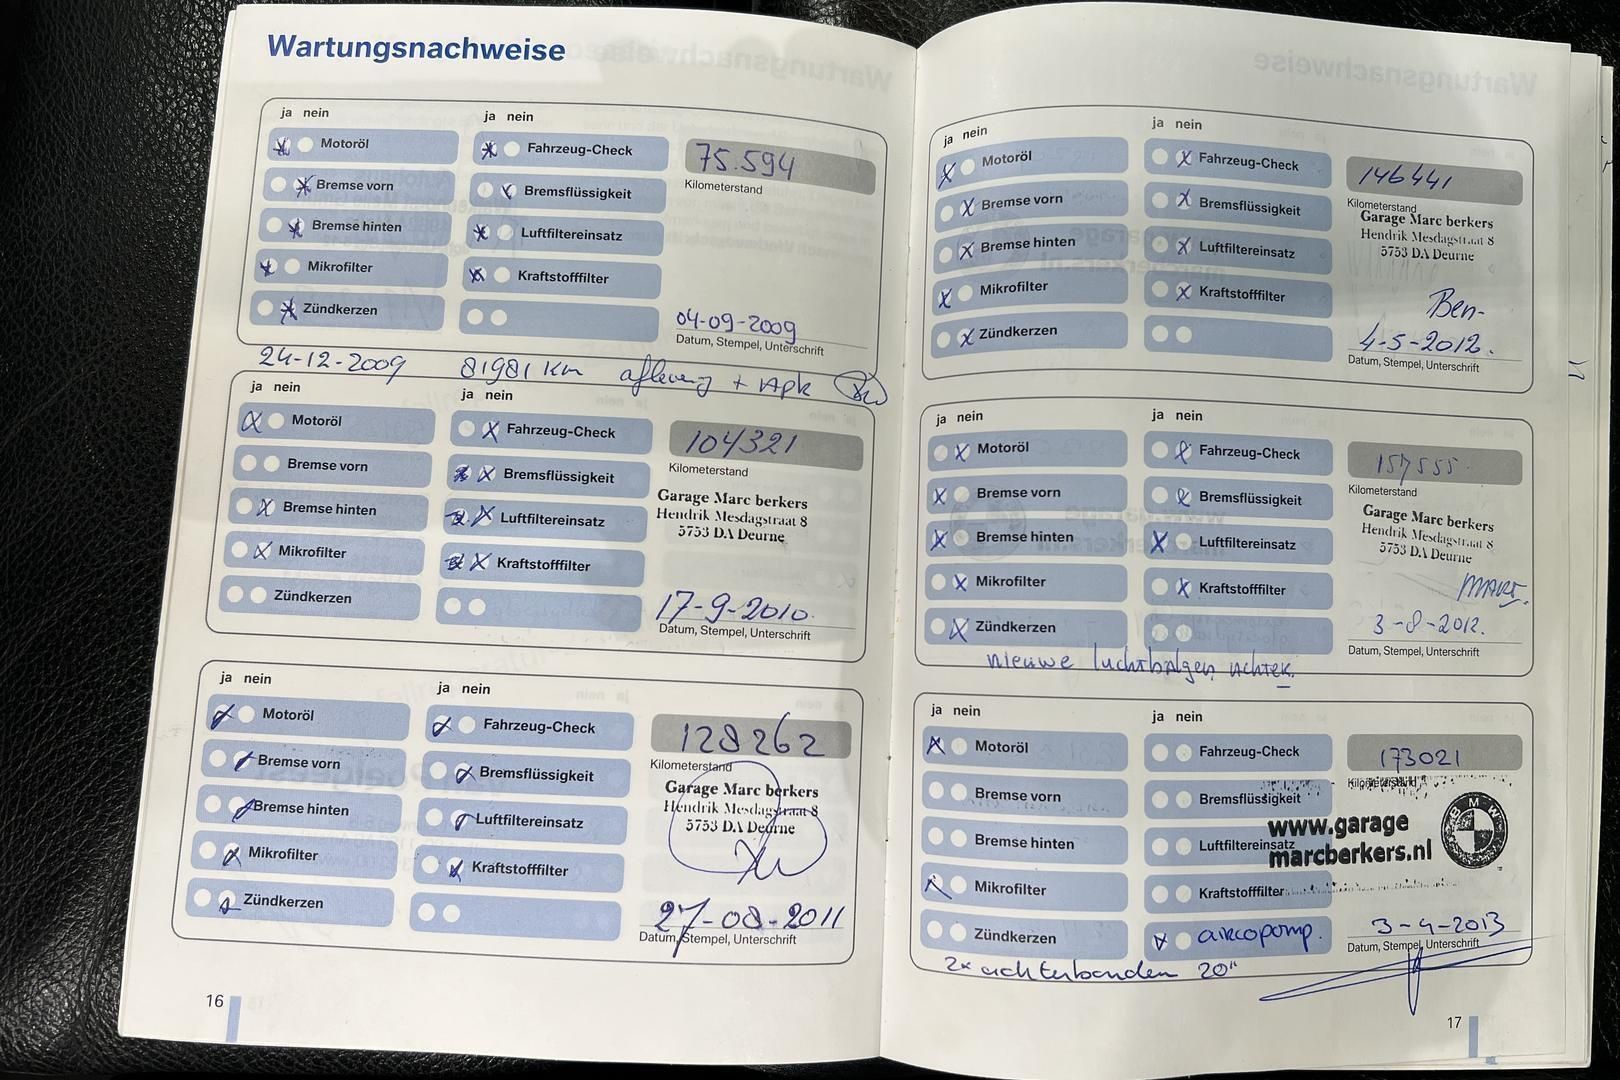 Wartungsnachweise
ja nein
ja nein
Motoröl
Fahrzeug-Check
75.594
Bremse vorn
Bremsflüssigkeit
Kilometerstand
Bremse hinten
Luftfiltereinsatz
Mikrofilter
Kraftstofffilter
Zündkerzen
04-09-2009
Datum, Stempel, Unterschrift
24-12-2009 81981 km aflevering + Apk
ja nein
ja nein
Motoröl
Fahrzeug-Check
104321
Bremse vorn
Bremsflüssigkeit
Kilometerstand
Bremse hinten
Luftfiltereinsatz
Garage Marc berkers
Hendrik Mesdagstraat 8
5753 DA Deurne
Mikrofilter
Kraftstofffilter
Zündkerzen
17-9-2010.
Datum, Stempel, Unterschrift
ja nein
ja nein
Motoröl
Fahrzeug-Check
128262
Bremse vorn
Bremsflüssigkeit
Kilometerstand
Bremse hinten
Luftfiltereinsatz
Garage Marc berkers
Hendrik Mesdagstraat 8
5753 DA Deurne
Mikrofilter
Kraftstofffilter
Zündkerzen
27-08-2011
Datum, Stempel, Unterschrift
16
ja nein
ja nein
Motoröl
Fahrzeug-Check
146441
Bremse vorn
Bremsflüssigkeit
Kilometerstand
Bremse hinten
Luftfiltereinsatz
Garage Marc berkers
Hendrik Mesdagstraat 8
5753 DA Deurne
Mikrofilter
Kraftstofffilter
Ben-
Zündkerzen
4-5-2012.
Datum, Stempel, Unterschrift
ja nein
ja nein
Motoröl
Fahrzeug-Check
157555
Bremse vorn
Bremsflüssigkeit
Kilometerstand
Bremse hinten
Luftfiltereinsatz
Garage Marc berkers
Hendrik Mesdagstraat 8
5753 DA Deurne
Mikrofilter
Kraftstofffilter
MARC
Zündkerzen
3-8-2012.
Datum, Stempel, Unterschrift
nieuwe luchtbalgen achter.
ja nein
ja nein
Motoröl
Fahrzeug-Check
173021
Bremse vorn
Bremsflüssigkeit
Kilometerstand
Bremse hinten
Luftfiltereinsatz
www.garage
marcberkers.nl
BMW
Mikrofilter
Kraftstofffilter
Zündkerzen
aircopomp.
3-4-2013
Datum, Stempel, Unterschrift
2x achterbanden 20"
17